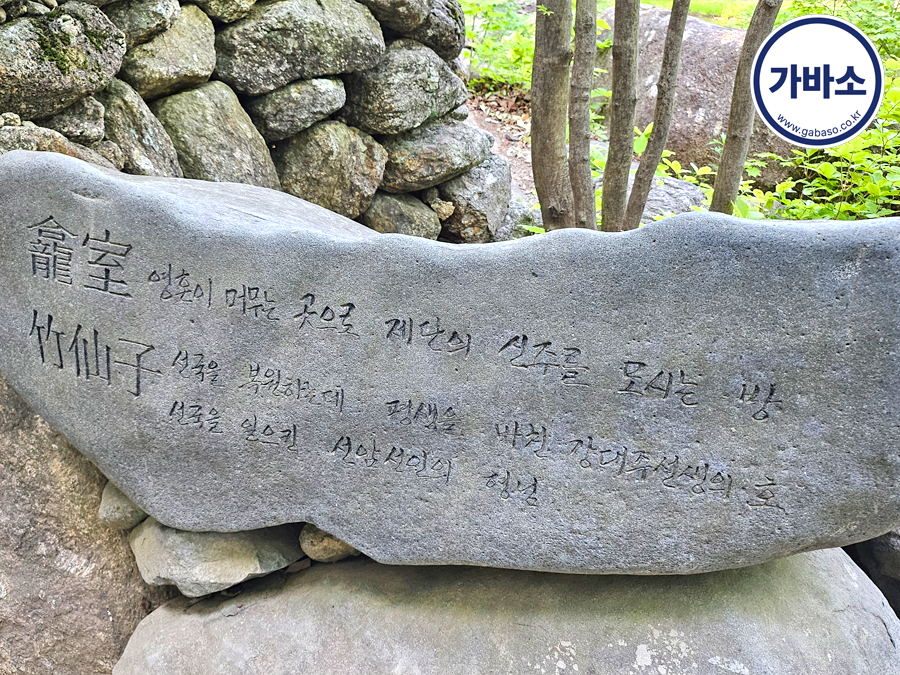 가바소
www.gabaso.co.kr
龕室 영혼이 머무는 곳으로 제단의 신주를 모시는 방
竹仙子 선국을 복원하는데 평생을 바친 강대주선생의 호
선국을 일으킨 선암선인의 형님